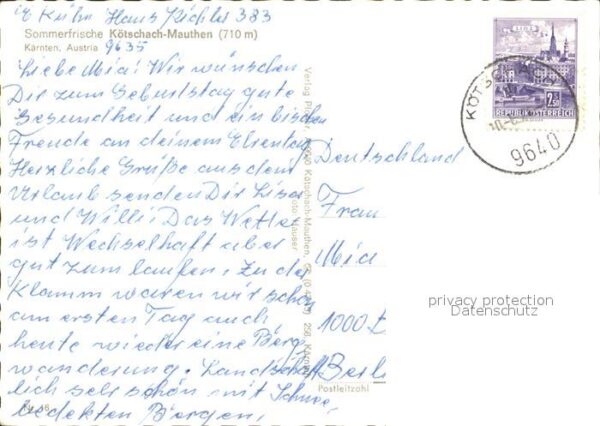 Kuhn Hans Pichler 383
Sommerfrische Kötschach-Mauthen (710 m)
Kärnten, Austria 9635
Liebe Mia! Wir wünschen
Dir zum Geburtstag gute
Gesundheit und ein bischen
Freude an deinem Ehrentag
Herzliche Grüße aus dem
Urlaub senden Dir Lisa
und Willi. Das Wetter
ist Wechselhaft aber
gut zum laufen. Zu der
Klamm waren wir schon
am ersten Tag auch
heute wieder eine Berg
wanderung. Landschaft
lich sehr schön mit Schnee
bedekten Bergen,
Verlag Kötschach-Mauthen,
Deutschland
Frau
Mia
1000
Berli
Postleitzahl
LINZ
2.50
REPUBLIK ÖSTERREICH
KÖTSCHACH
9640
privacy protection
Datenschutz